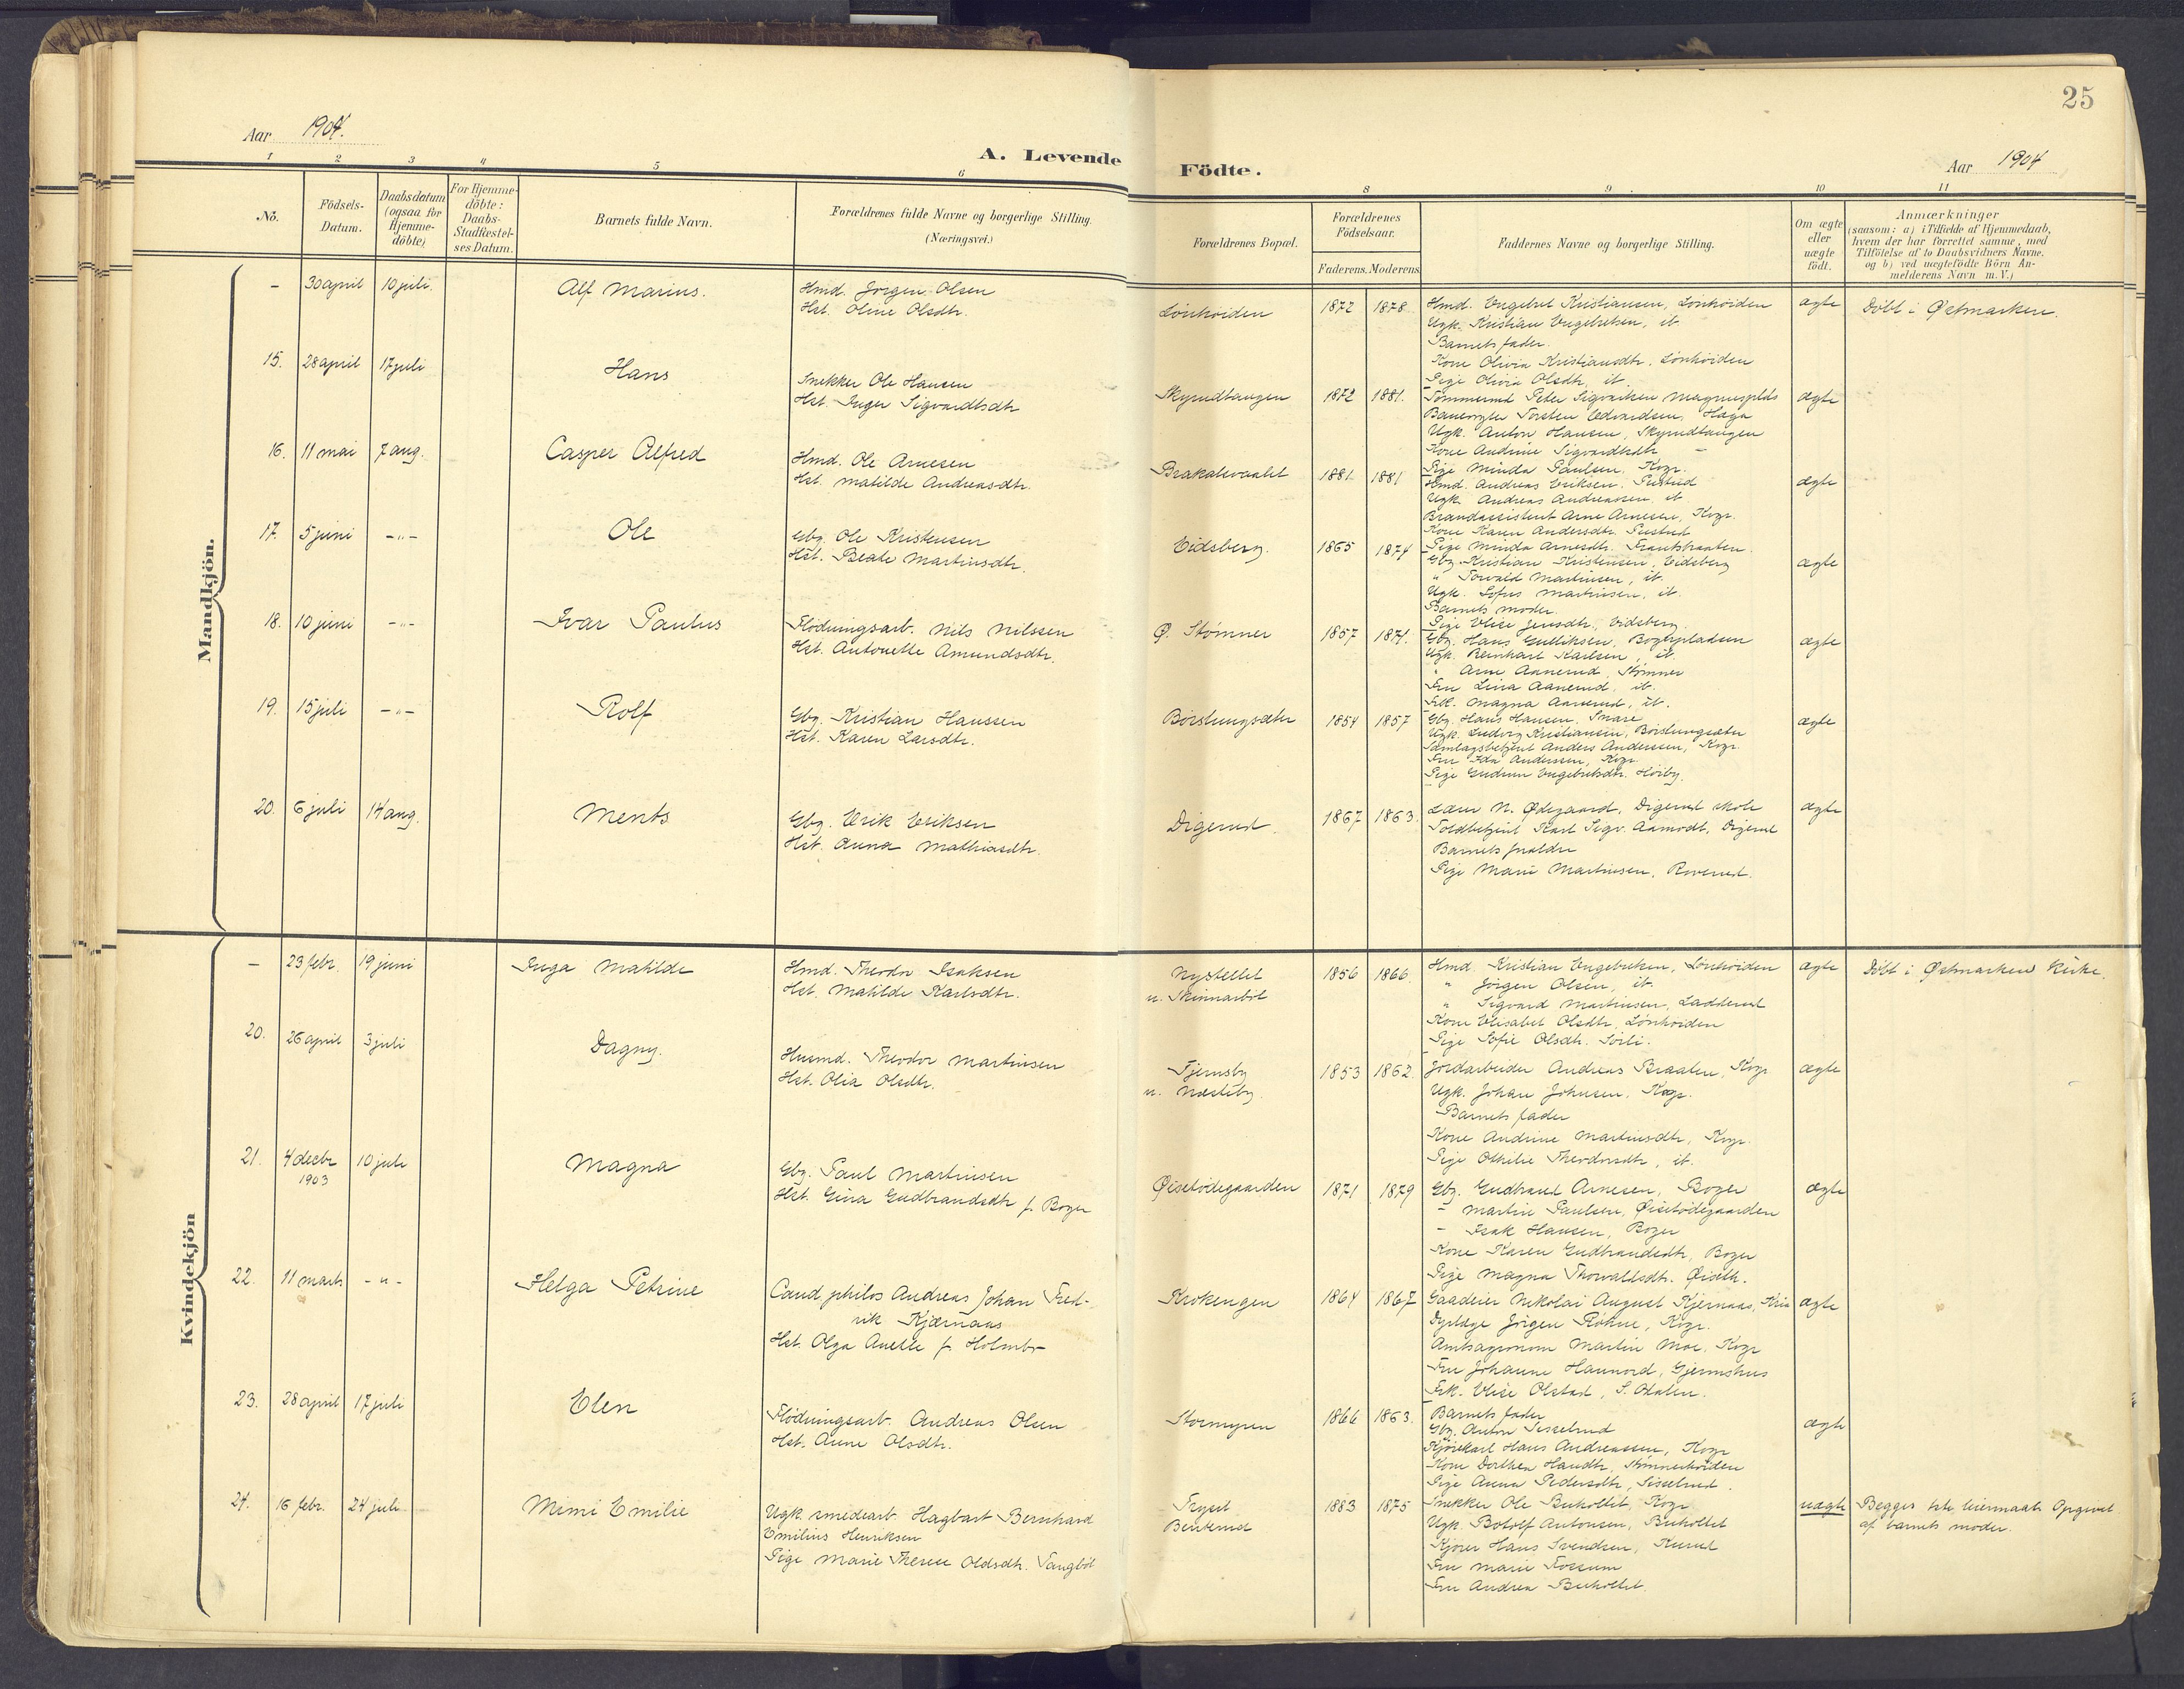 25
Aar 1904.
A. Levende Födte.
Aar 1904
1 2 3 4 5 6 8 9 10 11
No.
Födsels-
Datum.
Daabsdatum
(ogsaa for
Hjemme-
döbte)
For Hjemme-
döbte:
Daabs-
Stadfæstel-
ses Datum.
Barnets fulde Navn.
Forældrenes fulde Navne og borgerlige Stilling.
(Næringsvei.)
Forældrenes Bopæl.
Forældrenes
Födselsaar.
Faderens. Moderens
Faddernes Navne og borgerlige Stilling.
Om ægte
eller
uægte
födt.
Anmærkninger
(saasom: a) i Tilfælde af Hjemmedaab,
hvem der har forrettet samme, med
Tilföielse af to Daabsvidners Navne.
og b) ved uægtefödte Börn An-
melderens Navn m. V.)
Mandkjön.
- 30 april 10 juli. Alf Marius.
Hmd. Jörgen Olsen
Hst. Oline Olsdtr.
Lönhöiden 1872 1878
Hmd. Engebret Kristiansen, Lönhöiden
Ugk. Kristian Engebretsen, ib.
Barnets fader.
Kone Olivia Kristiansdtr. Lönhöiden
Pige Olivia Olsdtr. ib.
ægte Döbt i Østmarken.
15. 28 april 17 juli Hans
Snekker Ole Hansen
Hst. Inger Sigvardtsdtr
Skyrudtangen 1872 1881.
Tömmermd Peter Sigvartsen Magnusplds
Banevogter Torsten Edvardsen, Haga
Ugk. Anton Hansen, Skyrudtangen
Kone Andrine Sigvardtsdtr -
Pige Minda Paulsen, Kvgr.
ægte
16. 11 mai 7 aug. Casper Alfred
Hmd. Ole Arnesen
Hst. Matilde Andreasdtr.
1881 1881
Hmd. Andreas Eriksen, Pustud
Ugk. Andreas Andreassen, ib
Brandassistent Arne Arnesen, Kvgr.
Kone Karen Andersdtr. Pustud
Pige Minda Arnesdtr.
ægte
17. 5 juni -"- Ole
Gbg. Ole Kristensen
Hst. Beate Martinsdtr.
Eidsberg. 1865 1874
Gbg. Kristian Kristensen, Eidsberg
" Torvald Martinsen, ib.
Ugk. Sofus Martinsen, ib.
Barnets moder.
Pige Elise Jensdtr, Eidsberg.
ægte
18. 10 juni -"- Ivar Paulus
Flödningsarb. Nils Nilssen
Hst. Antonette Amundsdtr.
Ø. Stömner 1857 1871.
Gbg. Hans Gulliksen, Bogerpladsen
Ugk. Reinhart Karlsen, ib.
" Arne Aanerud, Stömner
Fru Lina Aanerud, ib.
Frk. Magna Aanerud, ib.
ægte
19. 15 juli -"- Rolf
Gbg. Kristian Hanssen
Hst. Karen Larsdtr.
Börslungsæter 1854 1857
Gbg. Hans Hansen, Snare
Ugk. Ludvig Kristiansen, Börslungsæter
Samlagsbetjent Anders Anderssen, Kvgr.
Fru Ida Andersen, Kvgr.
Pige Gudrun Engebretsdtr. Höiby.
ægte
20. 6 juli 14 aug. Ments
Gbg. Erik Eriksen
Hst. Anna Mathiasdtr.
Digerud. 1867 1863.
Lærer N. Ødegaard, Digerud skole
Toldbetjent Karl Sigv. Aamodt, Digerud
Barnets foreldre
Pige Marie Martinsen, Roverud.
ægte
Kvindekjön
- 23 febr. 19 juni Inga Matilde
Hmd. Theodor Isaksen
Hst. Matilde Karlsdtr.
Nystellet
u. Skinnarböl
1856 1866.
Hmd. Kristian Engebretsen, Lönhöiden
" Jörgen Olsen, ib.
" Sigvard Martinsen, Ladderud
Kone Elisabet Olsdtr, Lönhöiden
Pige Sofie Olsdtr. Sörli.
ægte Döbt i Østmarkens kirke.
20. 26 april 3 juli Dagny.
Husmd. Theodor Martinsen
Hst. Olia Olsdtr.
Tjernsby
u. Næsteby.
1853 1862.
Jordarbeider Andreas Braaten, Kvgr
Ugk. Johan Johnsen, Kvgr.
Barnets fader
Kone Andrine Martinsdtr, Kvgr.
Pige Othilie Theodorsdtr, ib.
ægte
21. 4 decbr 1903 10 juli Magna
Gbg. Paul Martinsen
Hst. Gina Gudbrandsdtr f. Boger
Øisetödegaarden 1871 1879
Gbg. Gudbrand Arnesen, Boger
- Martin Paulsen, Øisetödegaarden
- Isak Hansen, Boger
Kone Karen Gudbrandsdtr, Boger
Pige Magna Thorvaldsdtr. Øiseth.
ægte
22. 11 marts -"- Helga Petrine
Cand. philos Andreas Johan Fred-
rik Kjærnaas
Hst. Olga Anette f. Holmbo
Krokengen 1864 1867
Gaardeier Nikolai August Kjernaas, Kria
Dyrlæge Jörgen Rohne, Kvgr.
Amtsagronom Martin Moe, Kvgr
Fru Johanne Haunord, Gjermshus
Frk. Elise Olstad, S. Odalen.
ægte
23. 28 april 17 juli Elen
Flödningsarb. Andreas Olsen
Hst. Anne Olsdtr.
Stormyren 1866 1863.
Barnets fader
Gbg. Anton Sisselrud
Kjörekarl Hans Andreassen, Kvgr
Kone Dorthea Hansdtr, Stömnerhöiden
Pige Anna Pedersdtr, Sisselrud.
ægte
24. 16 febr. 24 juli Mimi Emilie
Ugk. smedearb. Hagbart Bernhard
Emilius Henriksen
Pige Marie Therese Oldsdtr. Tangböl
Trysil
Benterud
1883 1875
Snekker Ole Buholtet, Kvgr
Ugk. Botolf Antonsen, Buholtet
Kjörer Hans Svendsen,
Fru Marie Fossum
Fru Andrea Buholtet.
uægte Begges 1ste leiermaal. Opgivet
af barnets moder.